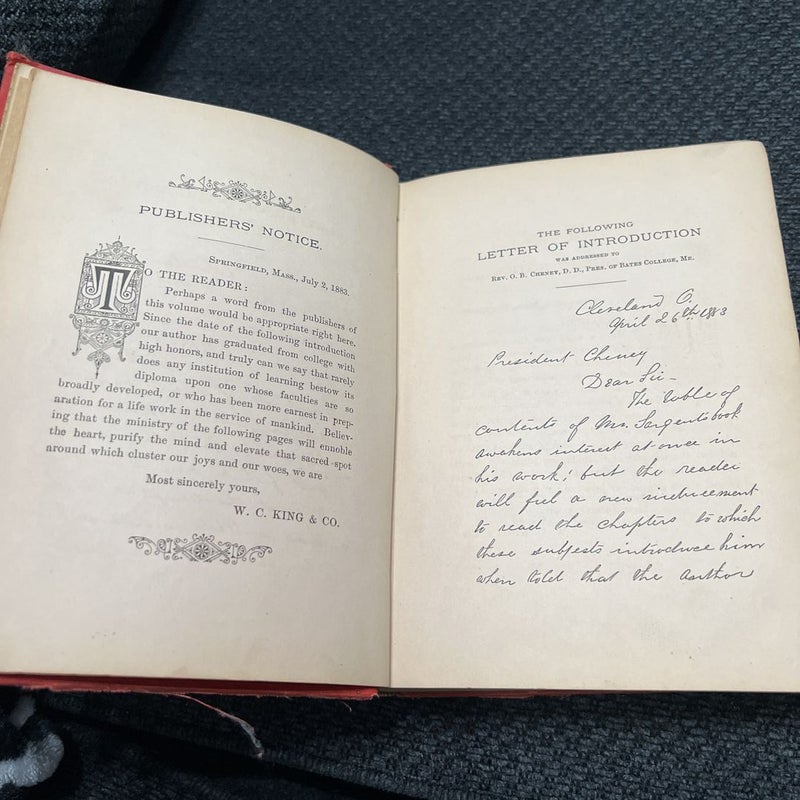 PUBLISHERS' NOTICE.
SPRINGFIELD, MASS., JULY 2, 1883.
TO THE READER:
Perhaps a word from the publishers of
this volume would be appropriate right here.
Since the date of the following introduction
our author has graduated from college with
high honors, and truly can we say that rarely
does any institution of learning bestow its
diploma upon one whose faculties are so
broadly developed, or who has been more earnest in prep-
aration for a life work in the service of mankind. Believ-
ing that the ministry of the following pages will ennoble
the heart, purify the mind and elevate that sacred spot
around which cluster our joys and our woes, we are
Most sincerely yours,
W. C. KING & CO.
THE FOLLOWING
LETTER OF INTRODUCTION
WAS ADDRESSED TO
REV. O. B. CHENEY, D. D., PRES. OF BATES COLLEGE, ME.
Cleveland O.
April 26th 1883
President Cheney
Dear Sir—
The table of
contents of Mr. Sargent's book
awakens interest at once in
his work; but the reader
will feel a new inducement
to read the chapters to which
these subjects introduce him
when told that the author